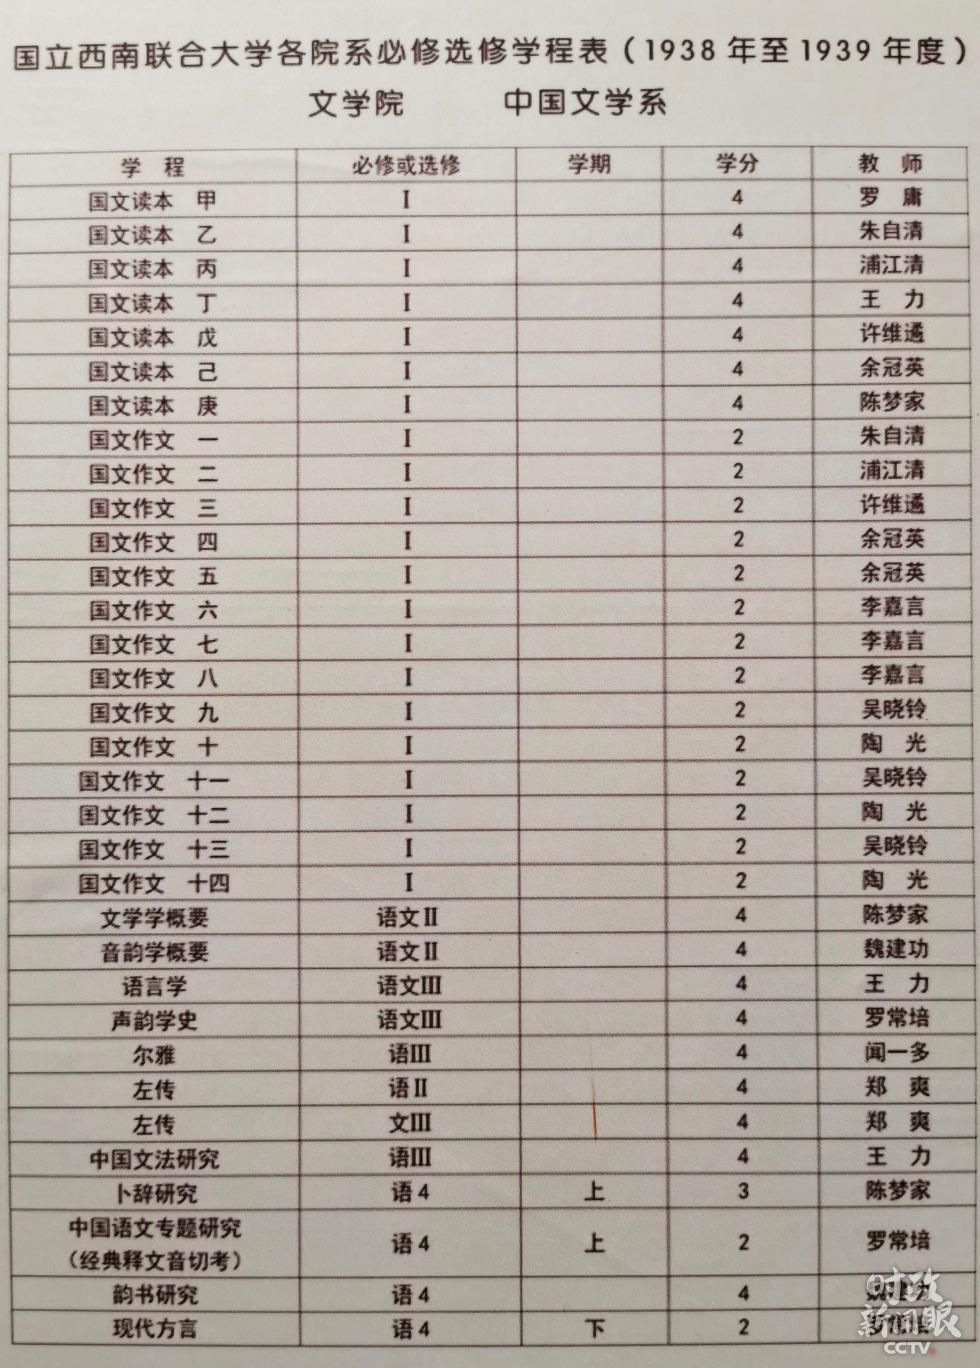 国立西南联合大学各院系必修选修学程表（1938 年至 1939 年度）
文学院 中国文学系
学 程 必修或选修 学期 学分 教 师
国文读本 甲 Ⅰ 4 罗 庸
国文读本 乙 Ⅰ 4 朱自清
国文读本 丙 Ⅰ 4 浦江清
国文读本 丁 Ⅰ 4 王 力
国文读本 戊 Ⅰ 4 许维遹
国文读本 己 Ⅰ 4 余冠英
国文读本 庚 Ⅰ 4 陈梦家
国文作文 一 Ⅰ 2 朱自清
国文作文 二 Ⅰ 2 浦江清
国文作文 三 Ⅰ 2 许维遹
国文作文 四 Ⅰ 2 余冠英
国文作文 五 Ⅰ 2 余冠英
国文作文 六 Ⅰ 2 李嘉言
国文作文 七 Ⅰ 2 李嘉言
国文作文 八 Ⅰ 2 李嘉言
国文作文 九 Ⅰ 2 吴晓铃
国文作文 十 Ⅰ 2 陶 光
国文作文 十一 Ⅰ 2 吴晓铃
国文作文 十二 Ⅰ 2 陶 光
国文作文 十三 Ⅰ 2 吴晓铃
国文作文 十四 Ⅰ 2 陶 光
文学学概要 语文Ⅱ 4 陈梦家
音韵学概要 语文Ⅱ 4 魏建功
语言学 语文Ⅲ 4 王 力
声韵学史 语文Ⅲ 4 罗常培
尔雅 语Ⅲ 4 闻一多
左传 语Ⅱ 4 郑 爽
左传 文Ⅲ 4 郑 爽
中国文法研究 语Ⅲ 4 王 力
卜辞研究 语 4 上 3 陈梦家
中国语文专题研究
（经典释文音切考） 语 4 上 2 罗常培
韵书研究 语 4 4
现代方言 语 4 下 2
时政
新闻眼
CCTV